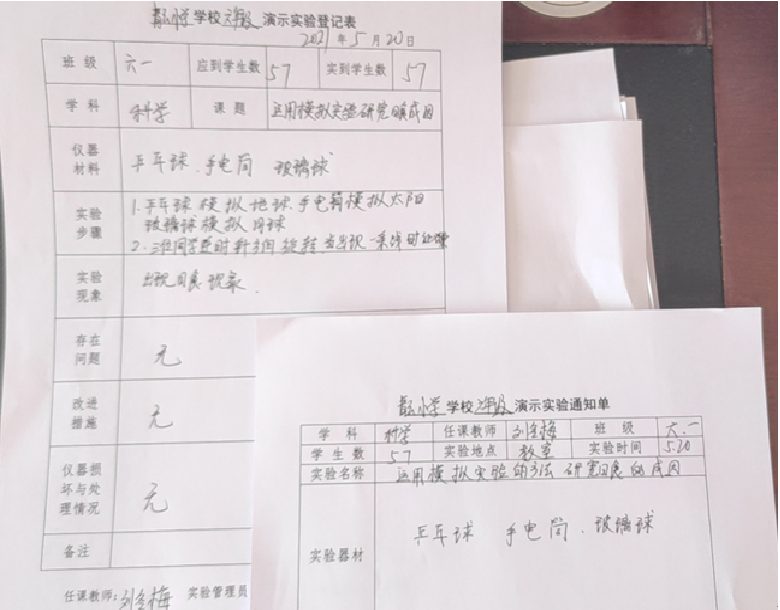 学校 演示实验登记表
2021年5月20日
班级 六一 应到学生数 57 实到学生数 57
学科 科学 课题 运用模拟实验研究 成因
仪器材料 乒乓球、手电筒 玻璃球
实验步骤 1.乒乓球模拟地球、手电筒模拟太阳
玻璃球模拟月球
2. 同学 时针 当出现一条线时
实验现象 出现日食现象.
存在问题 无
改进措施 无
仪器损坏与处理情况 无
备注
任课教师: 刘 梅 实验管理员
学校 演示实验通知单
学科 科学 任课教师 刘 梅 班级 六.一
学生数 57 实验地点 教室 实验时间 5.20
实验名称 运用模拟实验的方法研究日食的成因
实验器材 乒乓球 手电筒.玻璃球